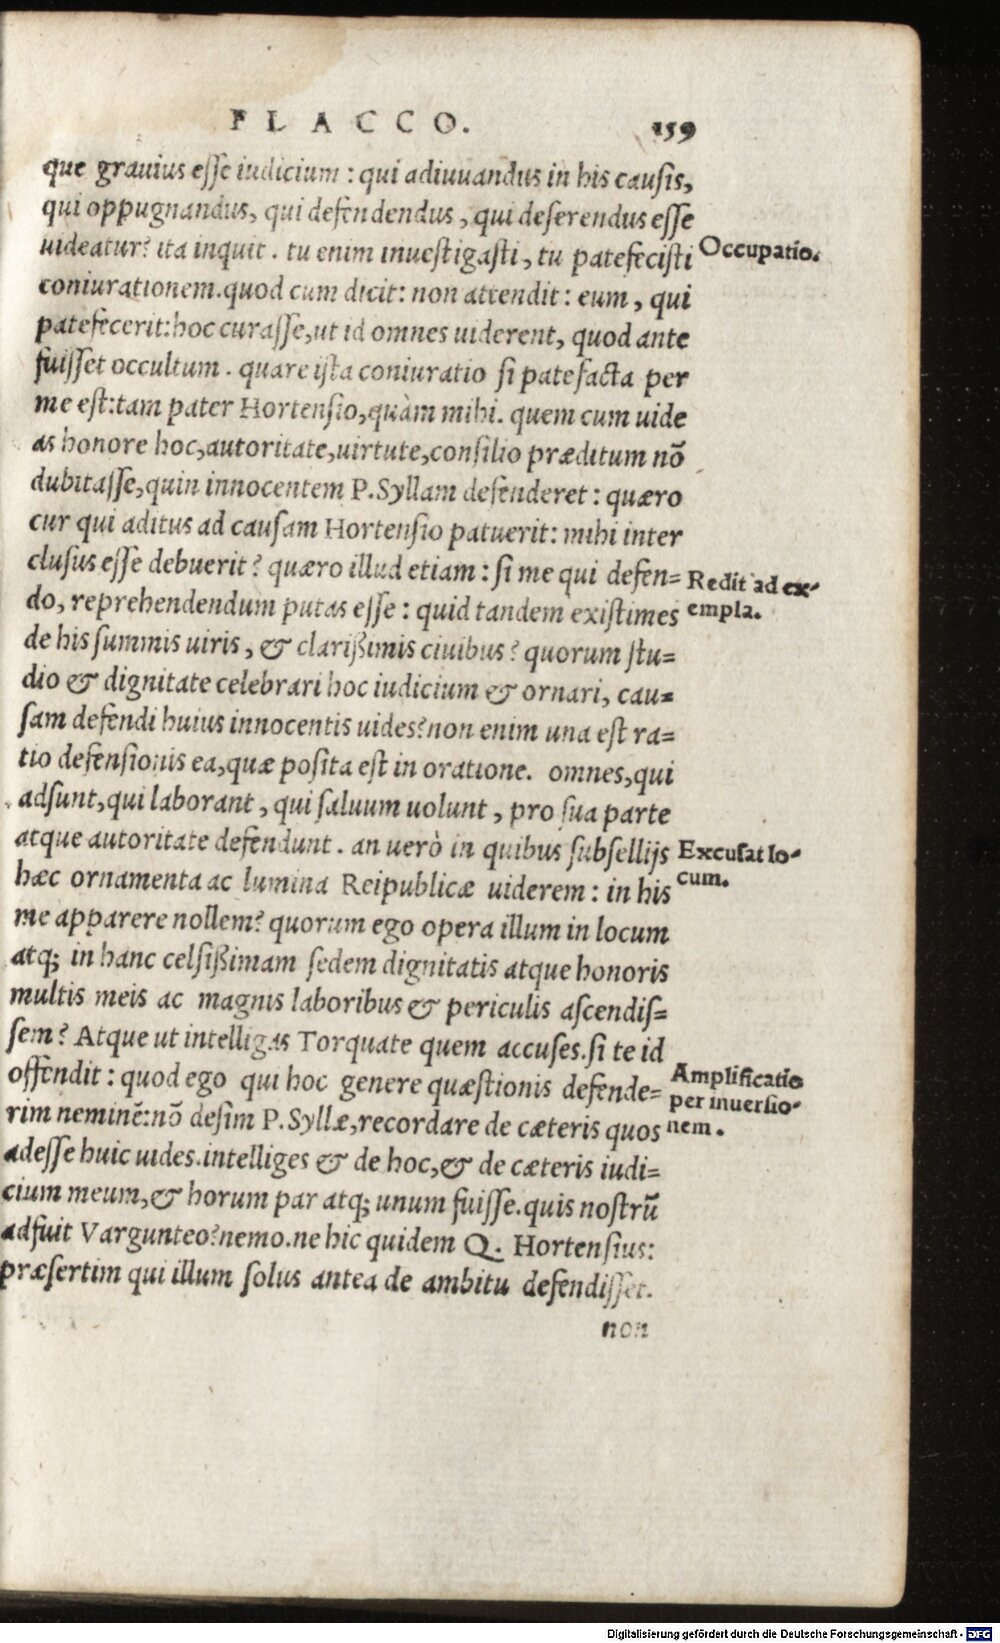 FLACCO. 159
que grauius esse iudicium : qui adiuuandus in his causis,
qui oppugnandus, qui defendendus, qui deserendus esse
uideatur? ita inquit. tu enim inuestigasti, tu patefecisti
Occupatio.
coniurationem. quod cum dicit: non attendit: eum, qui
patefecerit: hoc curasse, ut id omnes uiderent, quod ante
fuisset occultum. quare ista coniuratio si patefacta per
me est: tam pater Hortensio, quàm mihi. quem cum uide
as honore hoc, autoritate, uirtute, consilio præditum nō
dubitasse, quin innocentem P. Syllam defenderet: quæro
cur qui aditus ad causam Hortensio patuerit: mihi inter
clusus esse debuerit? quæro illud etiam: si me qui defen=
Redit ad ex-
do, reprehendendum putas esse: quid tandem existimes
empla.
de his summis uiris, & clarißimis ciuibus? quorum stu=
dio & dignitate celebrari hoc iudicium & ornari, cau=
sam defendi huius innocentis uides? non enim una est ra=
tio defensionis ea, quæ posita est in oratione. omnes, qui
adsunt, qui laborant, qui saluum uolunt, pro sua parte
atque autoritate defendunt. an uerò in quibus subsellijs
Excusat lo-
hæc ornamenta ac lumina Reipublicæ uiderem: in his
cum.
me apparere nollem? quorum ego opera illum in locum
atq; in hanc celsißimam sedem dignitatis atque honoris
multis meis ac magnis laboribus & periculis ascendis=
sem? Atque ut intelligas Torquate quem accuses. si te id
offendit: quod ego qui hoc genere quæstionis defende=
Amplificatio
rim neminē: nō desim P. Syllæ, recordare de cæteris quos
per inuersio-
nem.
adesse huic uides. intelliges & de hoc, & de cæteris iudi=
cium meum, & horum par atq; unum fuisse. quis nostrū
adfuit Vargunteo? nemo. ne hic quidem Q. Hortensius:
præsertim qui illum solus antea de ambitu defendisset.
non
Digitalisierung gefördert durch die Deutsche Forschungsgemeinschaft - DFG